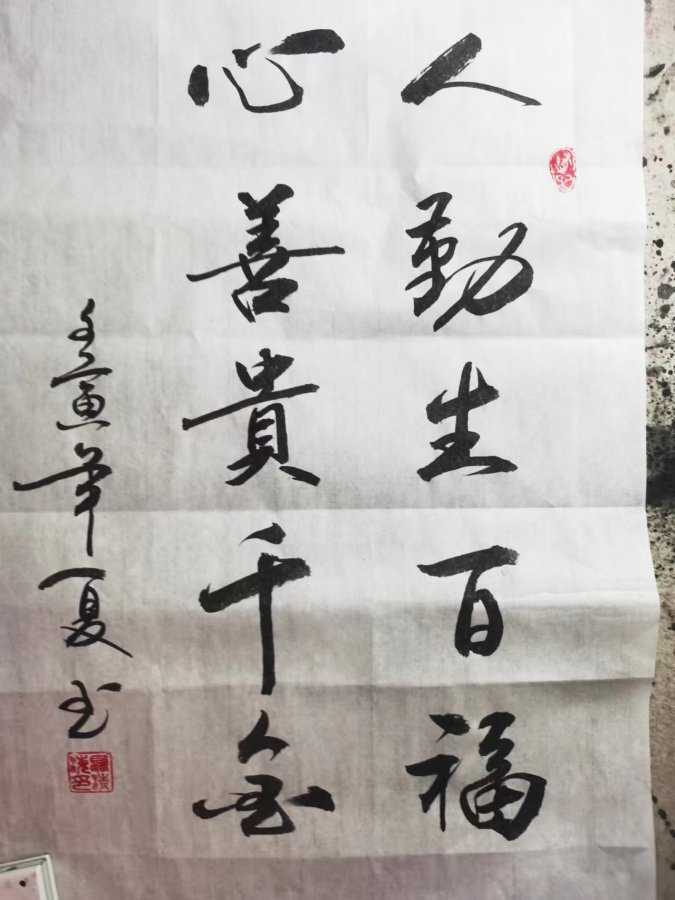 人勤生百福
心善貴千金
壬寅年夏玉